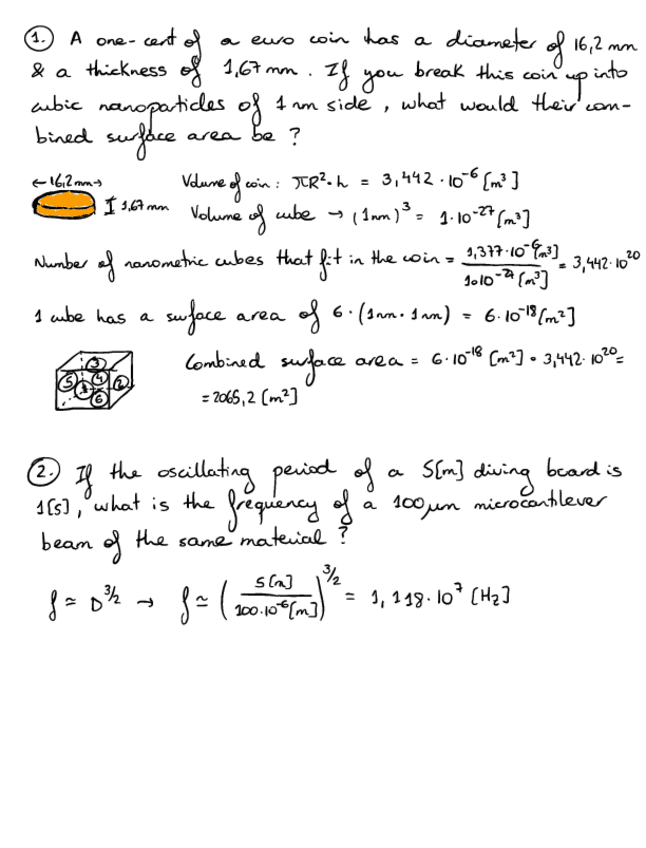 1. A one-cent of a euro coin has a diameter of 16,2 mm
& a thickness of 1,67 mm. If you break this coin up into
cubic nanoparticles of 1 nm side, what would their com-
bined surface area be?
←16,2mm→
1,67 mm
Volume of coin: πR²·h = 3,442·10⁻⁶ [m³]
Volume of cube → (1nm)³ = 1·10⁻²⁷ [m³]
Number of nanometric cubes that fit in the coin = 1,377·10⁻⁶[m³] / 1·10⁻²⁷[m³] = 3,442·10²⁰
1 cube has a surface area of 6·(1nm·1nm) = 6·10⁻¹⁸[m²]
3
5 4 2
1
6
Combined surface area = 6·10⁻¹⁸ [m²] · 3,442·10²⁰ =
= 2065,2 [m²]
2. If the oscillating period of a 5[m] diving board is
1[s], what is the frequency of a 100 μm microcantilever
beam of the same material?
f ≃ D^3/2 → f ≃ (5[m] / 100·10⁻⁶[m])^3/2 = 1,118·10⁷ [Hz]